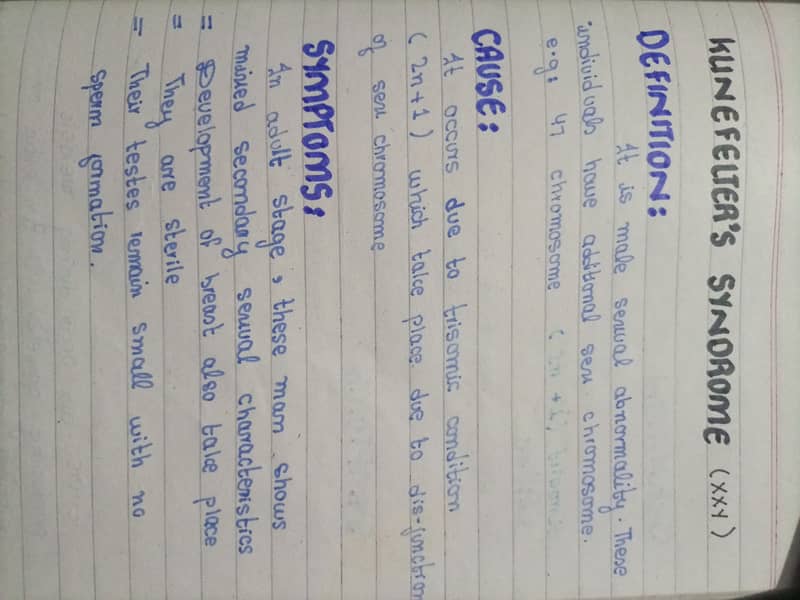 KLINEFELTER'S SYNDROME (XXY)
DEFINITION:
It is male sexual abnormality. These
individuals have additional sex chromosome.
e.g: 47 chromosome (2n+1)
CAUSE:
It occurs due to trisomic condition
(2n+1) which take place due to dis-junction
of sex chromosome
SYMPTOMS:
In adult stage, these man shows
mixed secondary sexual characteristics
= Development of breast also take place
= They are sterile
= Their testes remain small with no
sperm formation.